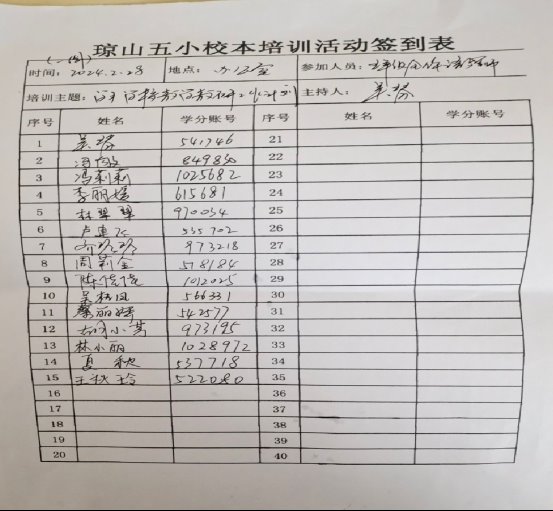 琼山五小校本培训活动签到表
时间: 2024.2.28 地点: 办公室 参加人员:
培训主题: 主持人: 吴
序号 姓名 学分账号 序号 姓名 学分账号
1 吴 541746 21
2 冯 849830 22
3 冯莉莉 1025682 23
4 李丽媛 615681 24
5 林翠翠 970034 25
6 卢 535702 26
7 973218 27
8 周莉金 578184 28
9 陈 1012025 29
10 吴 566331 30
11 丽 542577 31
12 胡小 973195 32
13 林小丽 1028972 33
14 夏秋 537718 34
15 王秋玲 522080 35
16 36
17 37
18 38
19 39
20 40